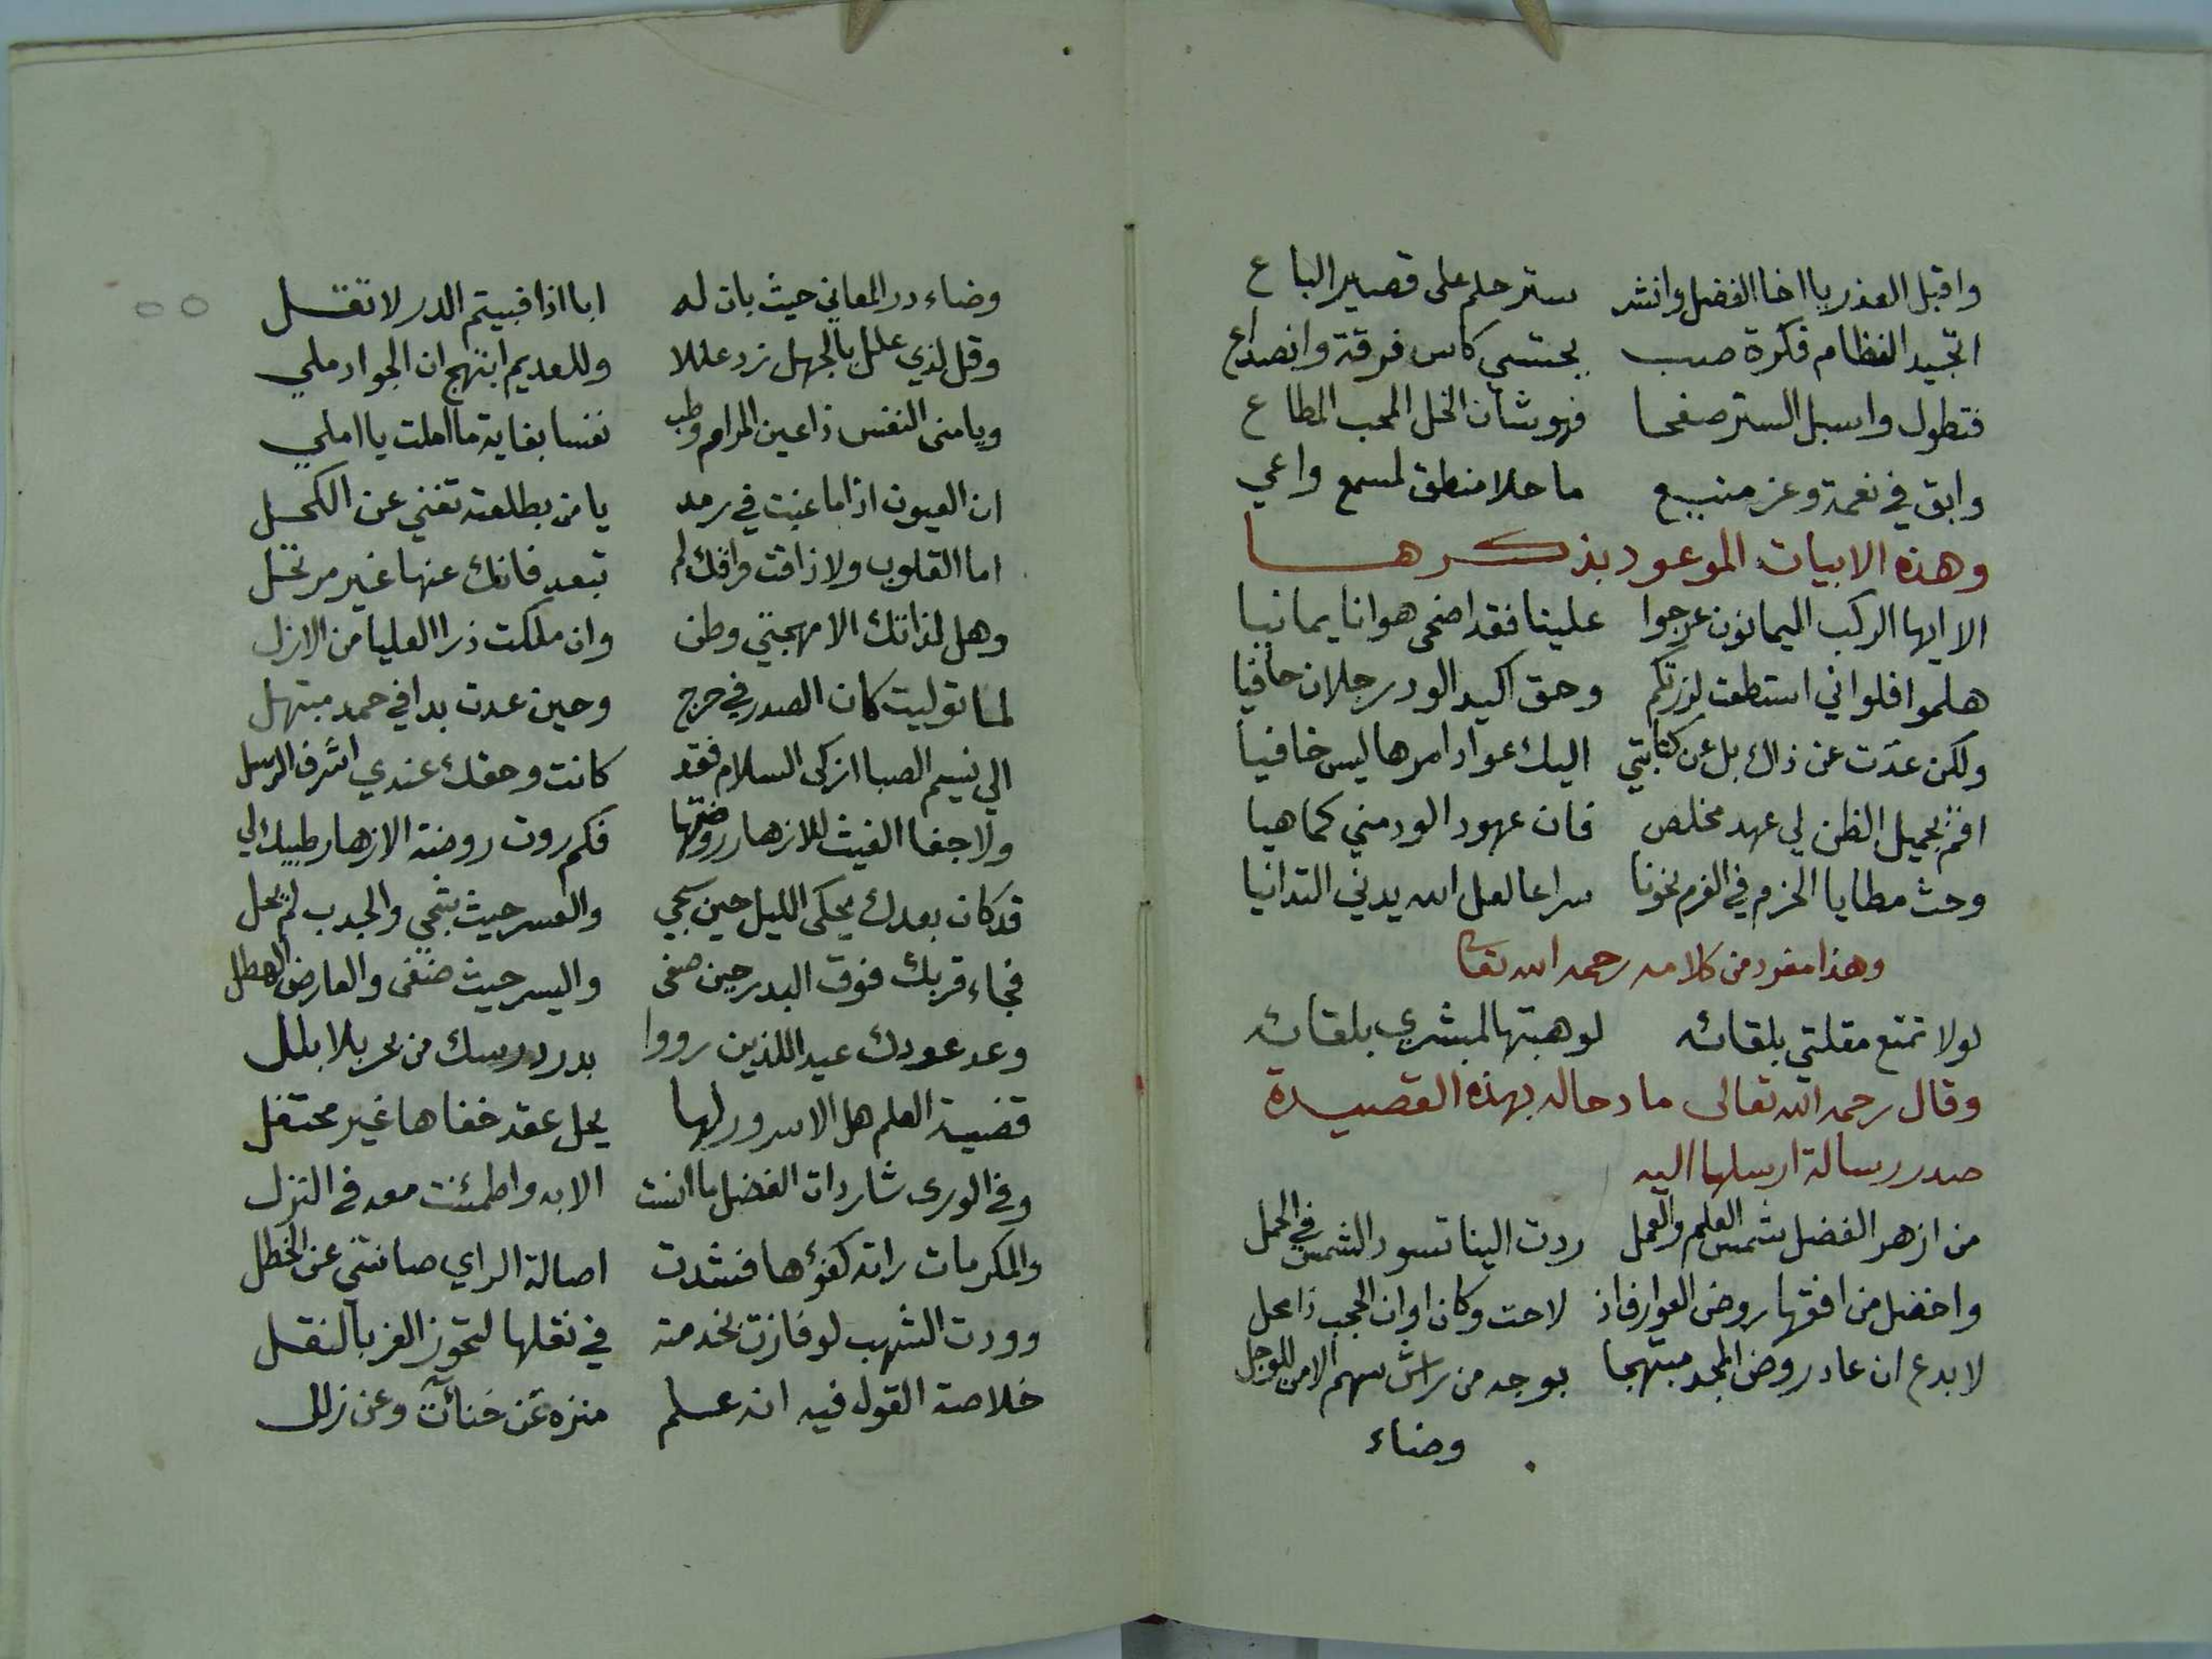 واقبل العذر يا اخا الفضل وانشر ستر حلم على قصير الباع
اتجيد الفظام فكرة صب يحتسي كاس فرقة وانصداع
فتطول واسبل الستر صفحا فهو شان الخل المحب المطاع
وابق في نعمة وعز منيع ما حلا منطق لمسمع واعي
وهذه الابيات الموعود بذكرها
الا ايها الركب اليمانون عرجوا علينا فقد اضحى هوانا يمانيا
هلموا فلو اني استطعت لزرتكم وحق اكيد الود رجلان حافيا
ولكن عدت عن ذاك بل عن كتابتي اليك عواد امرها ليس خافيا
اقم بجميل الظن لي عهد مخلص فان عهود الود مني كما هيا
وحث مطايا الحزم في العزم نحونا سراعا لعل الله يدني التدانيا
وهذا مفرد من كلامه رحمه الله تعا
لولا تمتع مقلتي بلقائه لوهبتها لمبشري بلقائه
وقال رحمه الله تعالى مادحا له بهذه القصيدة
صدر رسالة ارسلها اليه
من ازهر الفضل شمس العلم والعمل ردت الينا تسود الشمس في الحمل
واخضل من افقها روض العوارف اذ لاحت وكان اوان الحجب ذا محل
لا بدع ان عاد روض المجد مبتهجا بوجه من راش سهم الامن للوجل
وضاء
وضاء در المعاني حيث بان له ابا اذا فبيتم الدر لا تقل
وقل لذي علل بالجهل زد عللا وللعديم ابتهج ان الجواد ملي
ويا منى النفس ذا عين المرام وطب نفسا بغاية ما املت يا املي
ان العيون اذا ما غبت في رمد يا من بطلعته تغني عن الكحل
اما القلوب ولا ذاقت فراقك لم تبعد فانك عنها غير مرتحل
وهل لذاتك الا مهجتي وطن وان ملكت ذرا العليا من الازل
لما توليت كان الصدر في حرج وحين عدت بدا في حمد مبتهل
الي نسيم الصبا ازكى السلام فقد كانت وحقك عندي اشرف الرسل
ولا جفا الغيث للازهار روضتها فكم روت روضة الازهار طيبك لي
قد كان بعدك يحكي الليل حين سجي والعسر حيث شجي والجدب لم يحل
فجاء قربك فوق البدر حين صفى واليسر حيث ضفى والعارض الهطل
وعد عودك عيد اللذين رووا بدر درسك من بحر بلا بلل
قضية العلم هل الا سرور لها يحل عقد خفاها غير محتفل
وفي الورى شاردات الفضل ما انست الا به واطمئنت معه في النزل
والمكرمات راته كفؤها فنشدت اصالة الراي صانتني عن الخطل
وودت الشهب لو فازت بخدمته في نعلها لتحوز العز بالنقل
خلاصة القول فيه انه علم منزه عن خنآت وعن زلل